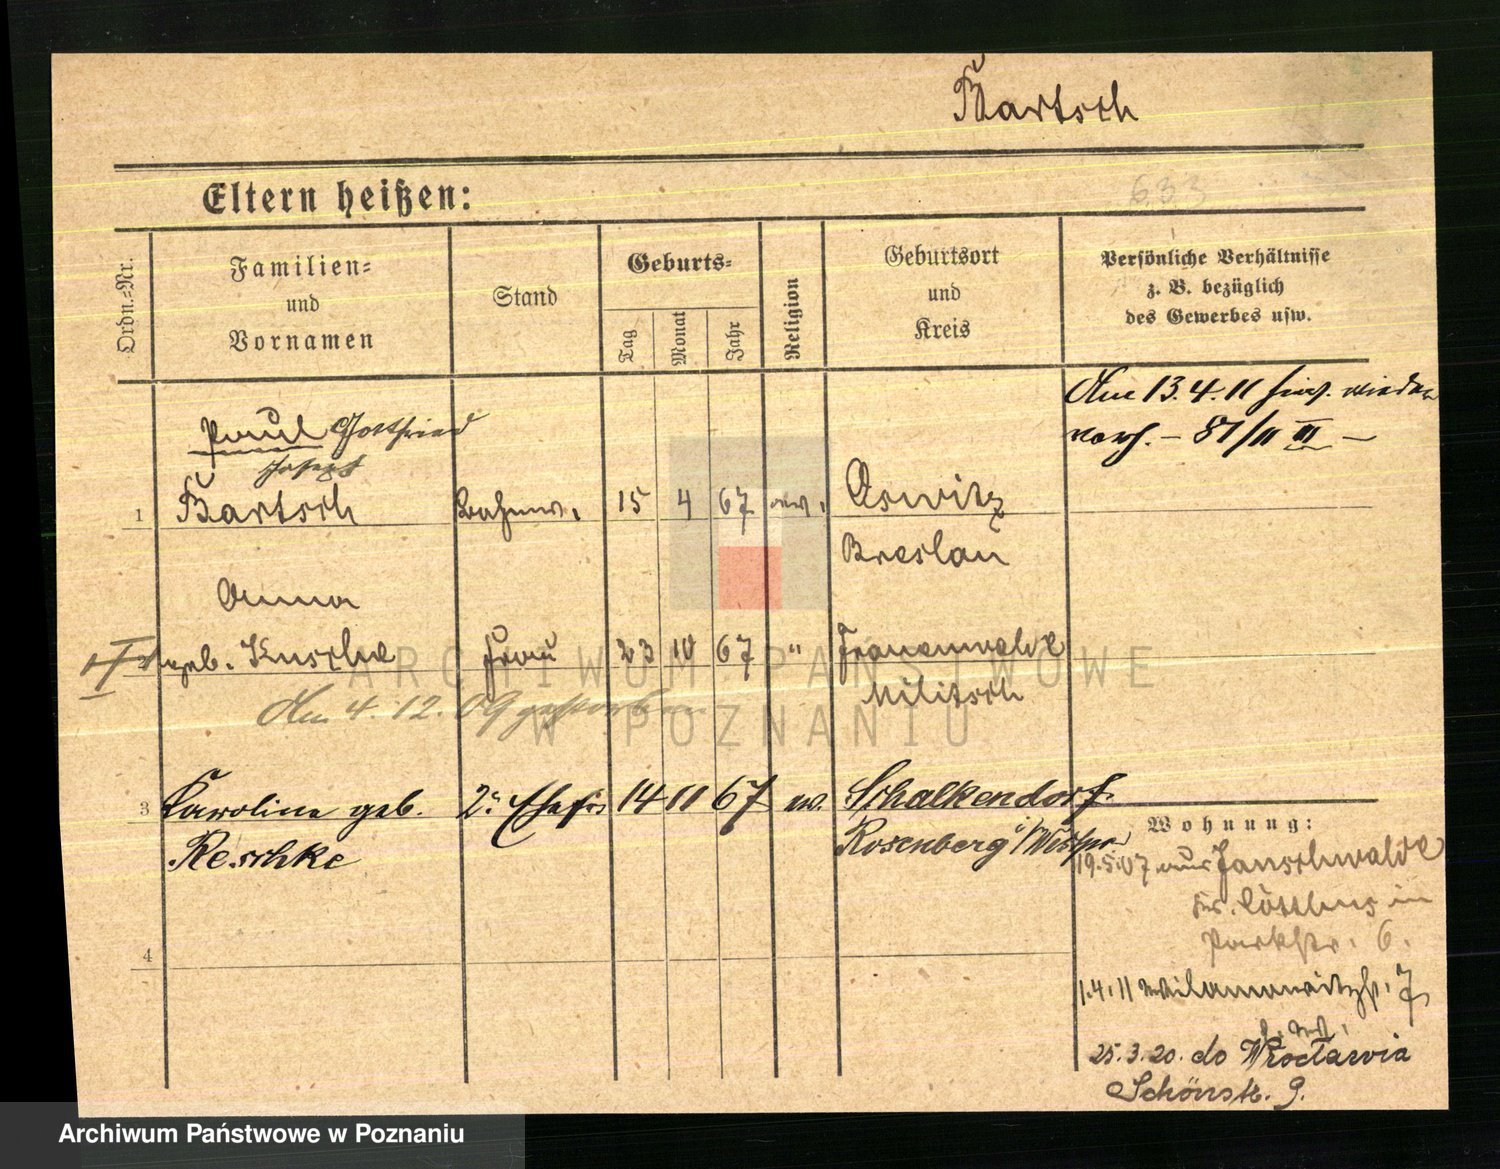 Bartsch
Eltern heißen:
633
Ordn.=Nr.
Familien=
und
Vornamen
Stand
Geburts=
Tag
Monat
Jahr
Religion
Geburtsort
und
Kreis
Persönliche Verhältnisse
z. B. bezüglich
des Gewerbes usw.
Am 13.4.11 wieder
- 81/11 II -
Paul Gottfried
Joseph
1 Bartsch 15 4 67 ev. Oswitz
Breslau
Anna
geb. Kusche Frau 23 10 67 " Frauenwalde
Militsch
Am 4.12.09 gestorben
3 Karoline geb. 2. Ehefr. 14 11 67 ev. Schalkendorf
Reschke Rosenberg i/Westpr
4
Wohnung:
19.5.07 aus Jänschwalde
Kr. Cottbus in
Parkstr. 6.
1.4.11 Wilamowitzstr. 7
25.3.20. do Wrocławia
Schönstr. 9.
ARCHIWUM PAŃSTWOWE
W POZNANIU
Archiwum Państwowe w Poznaniu